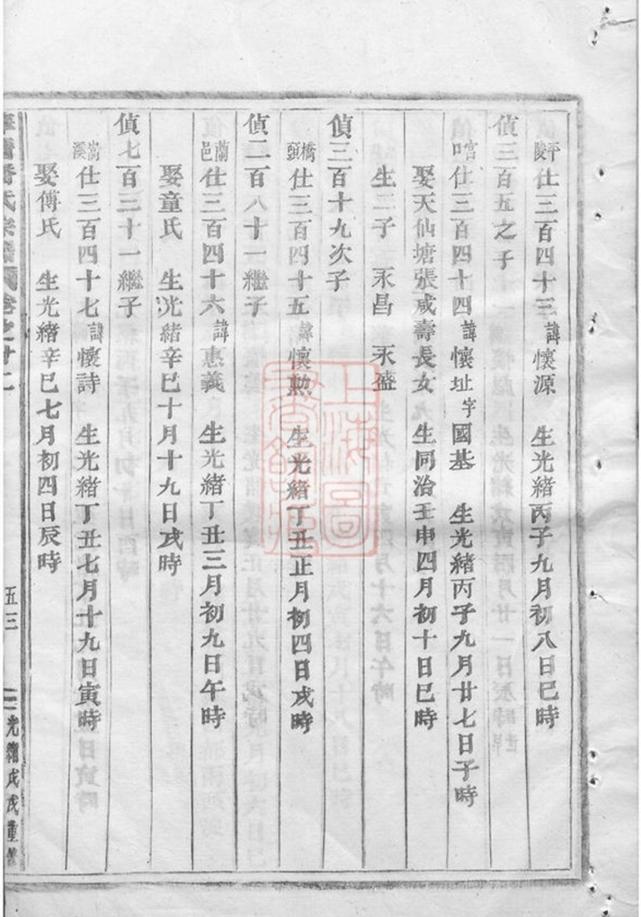 平陵 仕三百四十三 諱 懷源 生光緒丙子九月初八日巳時
偵三百五之子
仕三百四十四 諱 懷址 字 國基 生光緒丙子九月廿七日子時
娶天仙塘張咸壽長女 生同治壬申四月初十日巳時
生二子 永昌 永盛
偵三百十九次子
橋頭 仕三百四十五 諱 懷勲 生光緒丁丑正月初四日戌時
偵二百八十一繼子
蘭邑 仕三百四十六 諱 惠義 生光緒丁丑三月初九日午時
娶童氏 生光緒辛巳十月十九日戌時
偵七百三十一繼子
嵩溪 仕三百四十七 諱 懷詩 生光緒丁丑七月十九日寅時
娶傅氏 生光緒辛巳七月初四日辰時
氏宗譜 卷之廿二 五三 光緒戊戌重修
上海圖書館藏